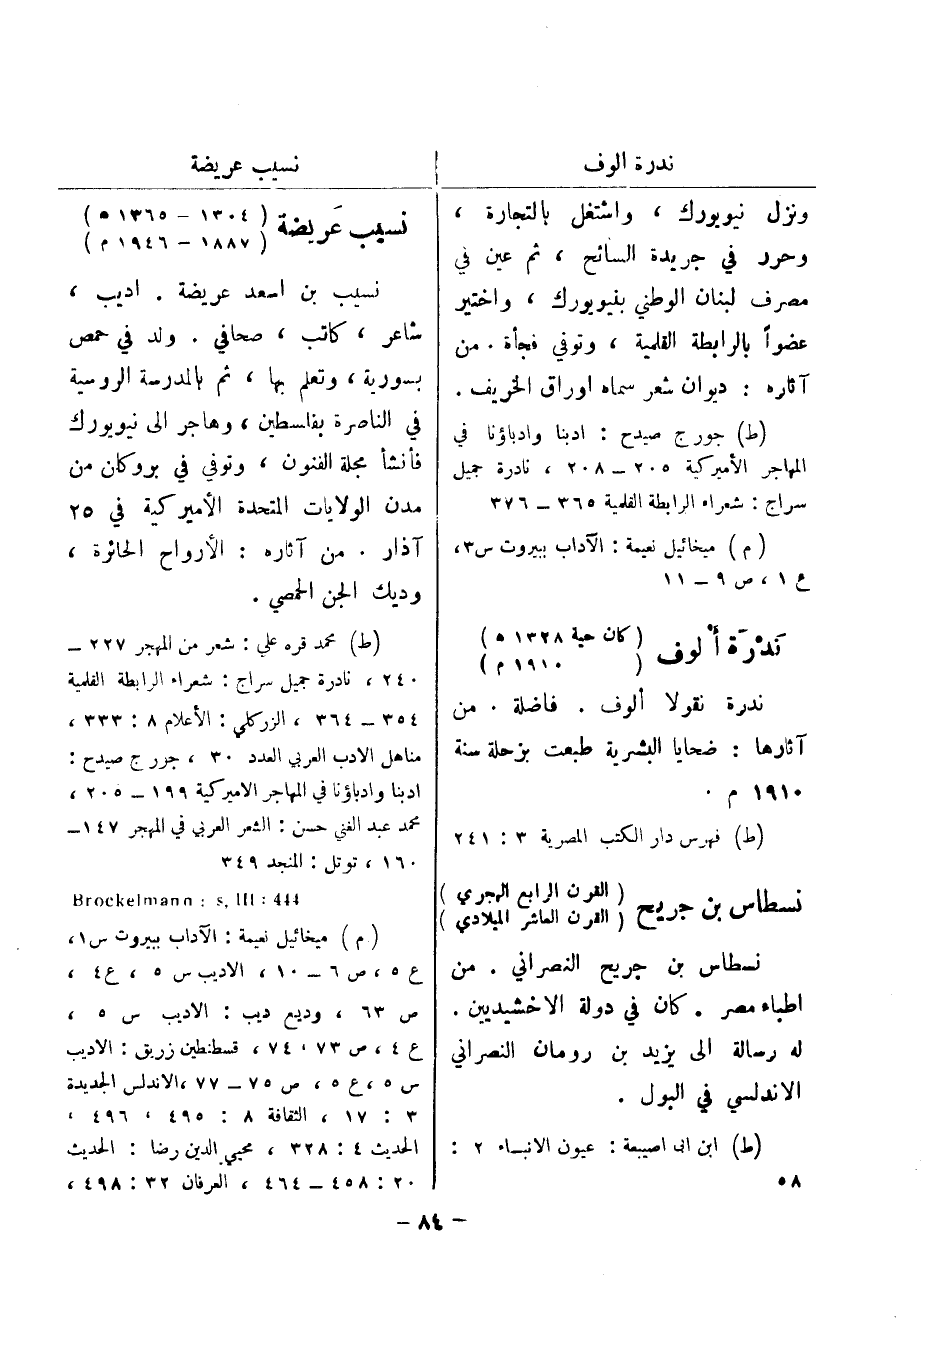 ندرة الوف
ونزل نيويورك ، واشتغل بالتجارة ،
وحرر في جريدة السائح ، ثم عين في
مصرف لبنان الوطني بنيويورك ، واختير
عضواً بالرابطة القلمية ، وتوفي فجأة . من
آثاره : ديوان شعر سماه اوراق الخريف .
(ط) جورج صيدح : ادبنا وادباؤنا في
المهاجر الأميركية ٢٠٥ – ٢٠٨ ، نادرة جميل
سراج : شعراء الرابطة القلمية ٣٦٥ – ٣٧٦
(م) ميخائيل نعيمة : الآداب ببيروت س٣،
ع ١ ، ص ٩ – ١١
نَدْرَة أُلوف (كان حية ١٣٢٨ ه)
( ١٩١٠ م)
ندرة نقولا ألوف . فاضلة . من
آثارها : ضحايا البشرية طبعت بزحلة سنة
١٩١٠ م .
(ط) فهرس دار الكتب المصرية ٣ : ٢٤١
نسطاس بن جريح (القرن الرابع الهجري)
(القرن العاشر الميلادي)
نسطاس بن جريح النصراني . من
اطباء مصر . كان في دولة الاخشيديين .
له رسالة الى يزيد بن رومان النصراني
الاندلسي في البول .
(ط) ابن ابى اصيبعة : عيون الانبساء ٢ :
٥٨
نسيب عريضة
نسيب عَريضة (١٣٠٤ – ١٣٦٥ ه)
(١٨٨٧ – ١٩٤٦ م)
نسيب بن اسعد عريضة . اديب ،
شاعر ، كاتب ، صحافي . ولد في حمص
بسورية ، وتعلم بها ، ثم بالمدرسة الروسية
في الناصرة بفلسطين ، وهاجر الى نيويورك
فأنشأ مجلة الفنون ، وتوفي في بروكان من
مدن الولايات المتحدة الأميركية في ٢٥
آذار . من آثاره : الأرواح الحائرة ،
وديك الجن الحمصي .
(ط) محمد قره علي : شعر من المهجر ٢٢٧ –
٢٤٠ ، نادرة جميل سراج : شعراء الرابطة القلمية
٣٥٤ – ٣٦٤ ، الزركلي : الأعلام ٨ : ٣٣٣ ،
مناهل الادب العربي العدد ٣٠ ، جورج صيدح :
ادبنا وادباؤنا في المهاجر الاميركية ١٩٩ – ٢٠٥ ،
محمد عبد الغني حسن : الشعر العربي في المهجر ١٤٧–
١٦٠ ، توتل : المنجد ٣٤٩
Brockelmann : s, III : 444
(م) ميخائيل نعيمة : الآداب ببيروت س١ ،
ع ٥ ، ص ٦ – ١٠ ، الاديب س ٥ ، ع٤ ،
ص ٦٣ ، وديع ديب : الاديب س ٥ ،
ع ٤ ، ص ٧٣ ، ٧٤ ، قسطنطين زريق : الاديب
س ٥ ، ع ٥ ، ص ٧٥ – ٧٧ ، الاندلس الجديدة
٣ : ١٧ ، الثقافة ٨ : ٤٩٥ ، ٤٩٦ ،
الحديث ٤ : ٣٢٨ ، محيي الدين رضا : الحديث
٢٠ : ٤٥٨ – ٤٦٤ ، العرفان ٣٢ : ٤٩٨ ،
– ٨٤ –